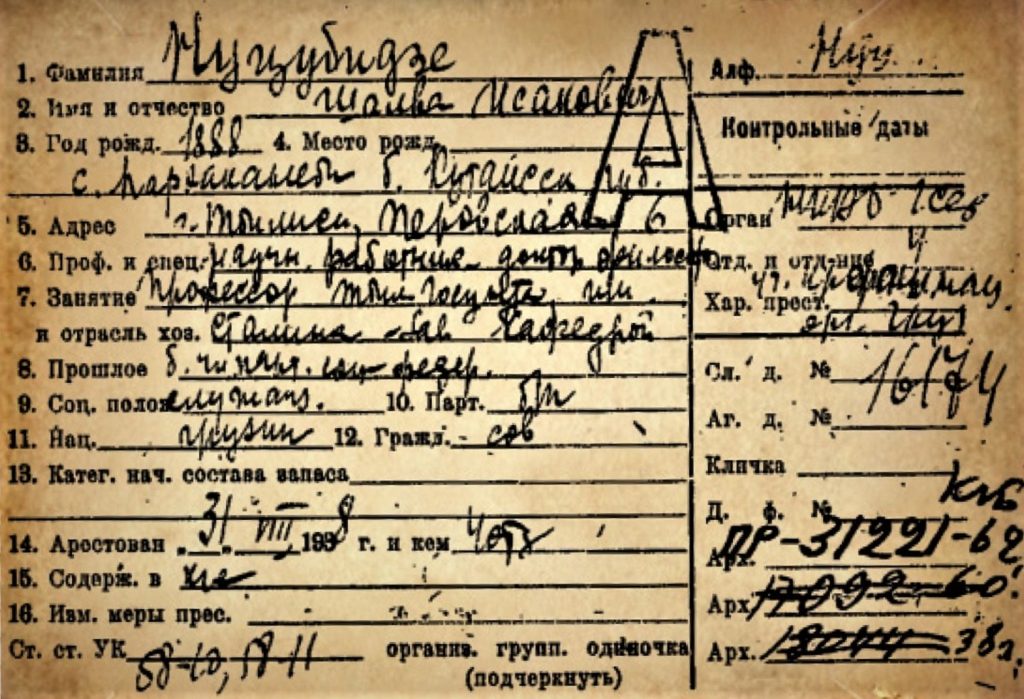 1. Фамилия Нуцубидзе
2. Имя и отчество Шалва Исакович
3. Год рожд. 1888 4. Место рожд.
с. б. Кутаисск. губ.
5. Адрес г. Тбилиси, Перовская 6
6. Проф. и спец. научн. работник доктор философ
7. Занятие Профессор Тбил. Госунта, им.
и отрасль хоз. Сталина зав кафедрой
8. Прошлое б. чл. парт. соц-федер.
9. Соц. полож служащ. 10. Парт. б/п
11. Нац. грузин 12. Гражд. сов
13. Катег. нач. состава запаса
14. Арестован 31 VIII 1938 г. и кем
15. Содерж. в
16. Изм. меры прес.
Ст. ст. УК 58-10, 58-11 организ. групп. одиночка
(подчеркнуть)
А
Алф. Нуц
Контрольные даты
Орган
Отд. и отд-ние 4
Хар. прест. уч.
орг. груз
Сл. д. № 16174
Аг. д. №
Кличка
Д. ф. № КГБ
Арх. ПР-31221-62
Арх. 17092-60.
Арх. 18044 38г.